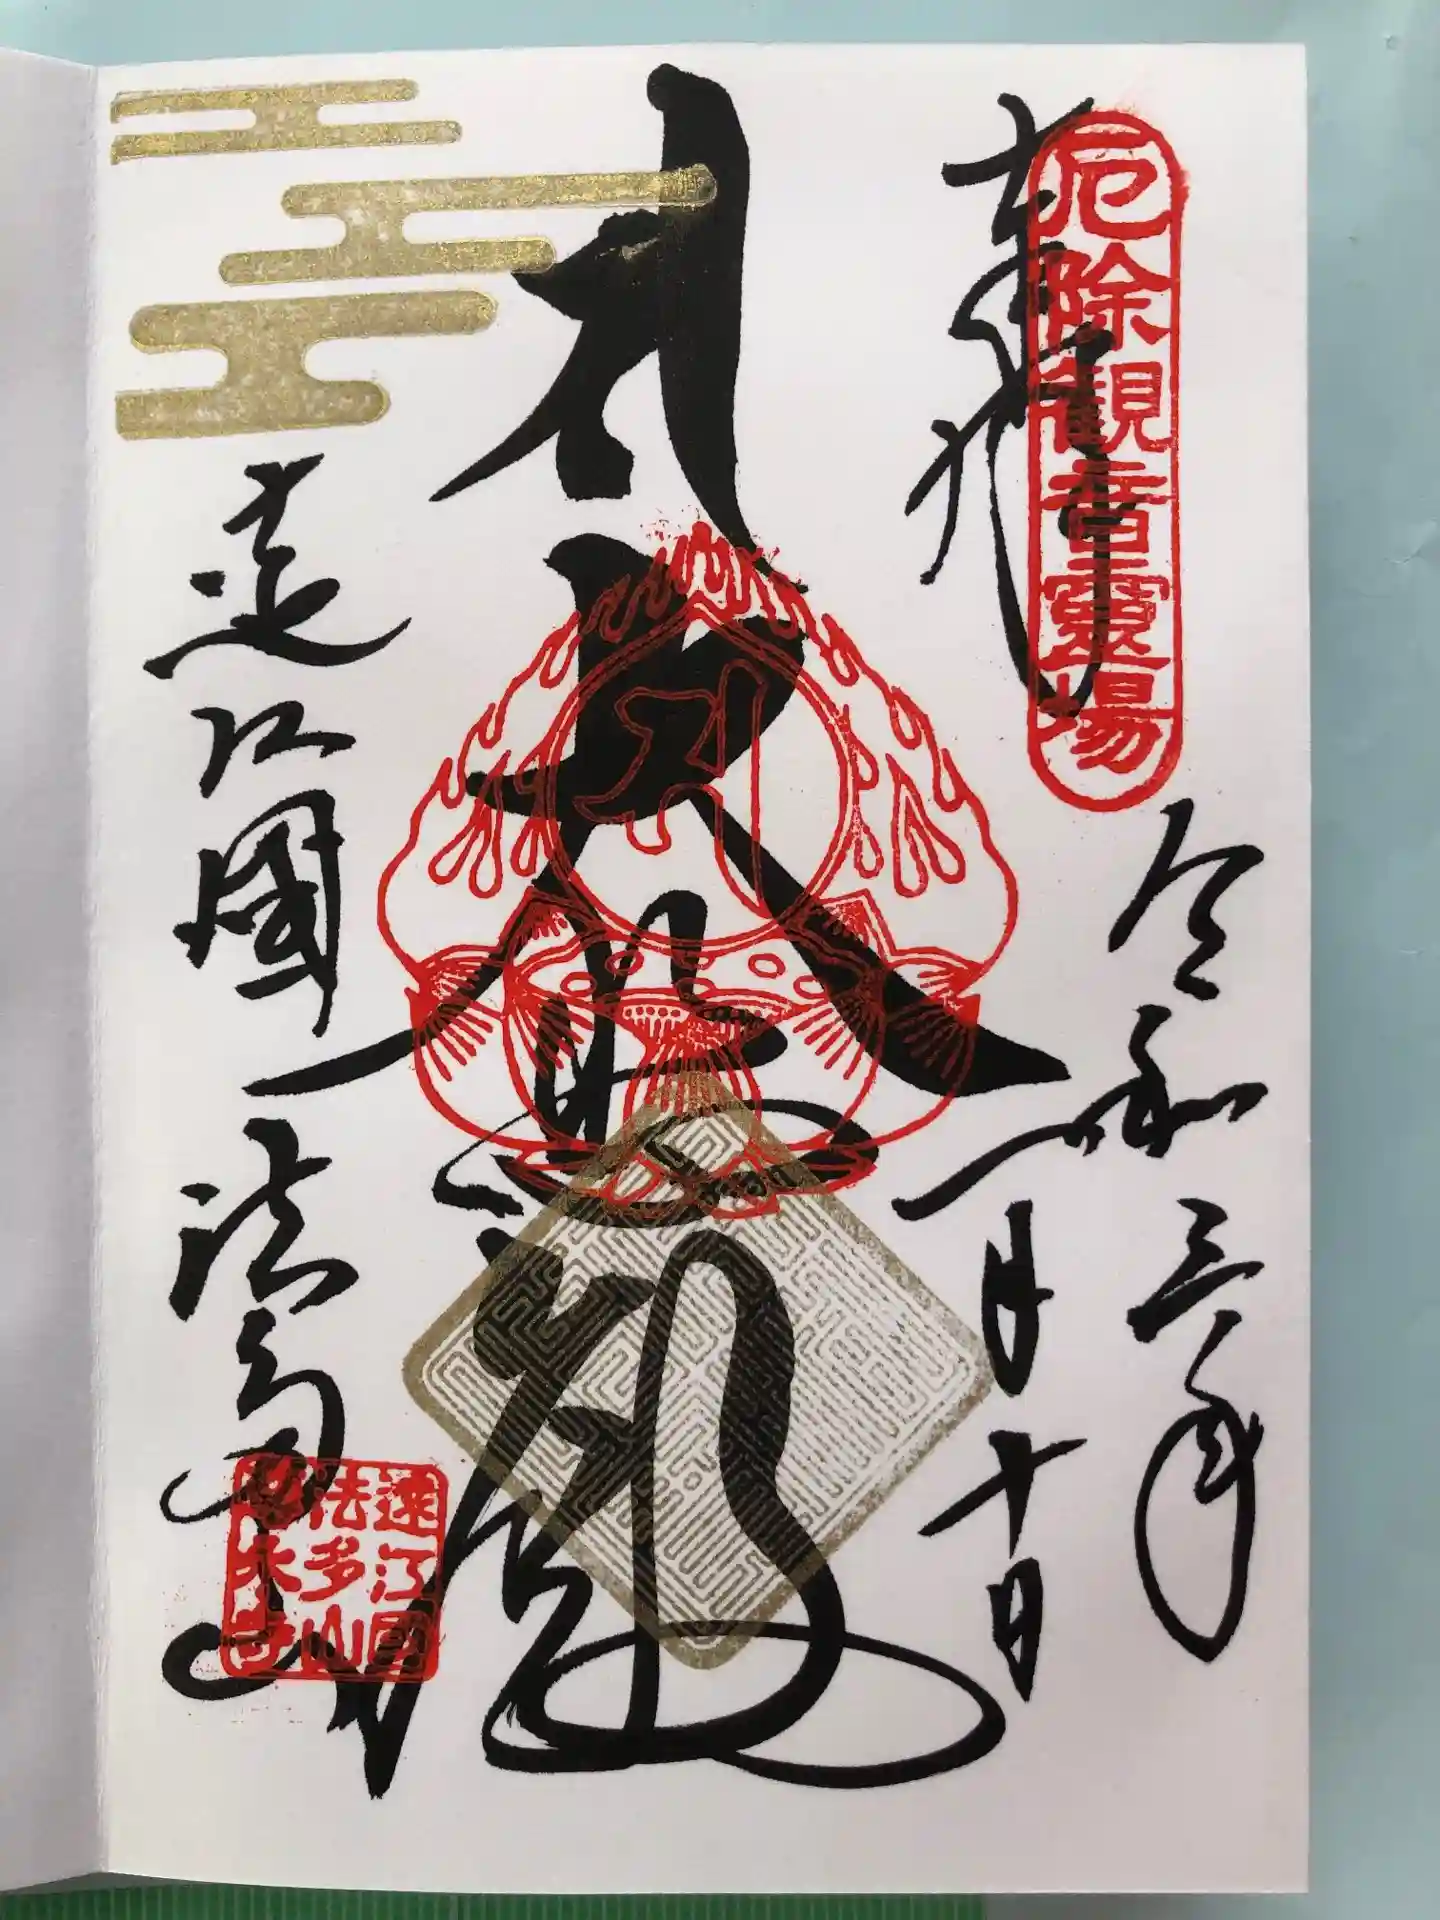 奉拝
厄除観音霊場
令和三年
一月十日
大悲殿
遠江國
法多山
遠江國
法多山
尊永寺